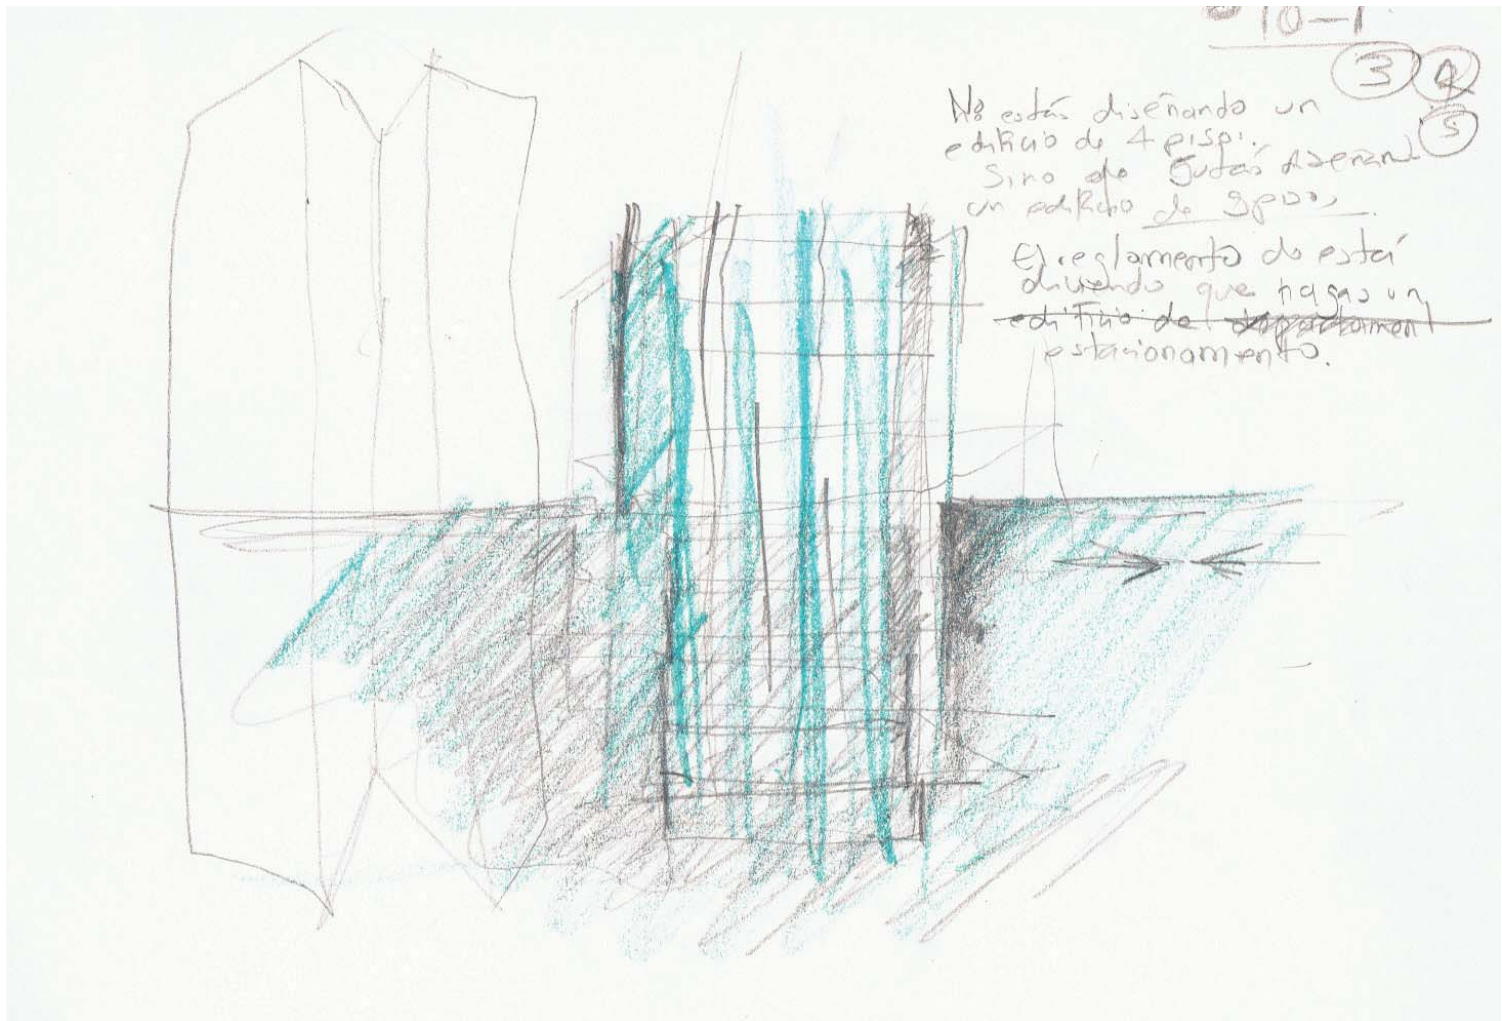 10-1
3 4
5
No estás diseñando un
edificio de 4 pisos.
Sino que estás diseñand
un edificio de 9 pisos.
El reglamento do está
diciendo que hagas un
edificio de departamen
estacionamento.